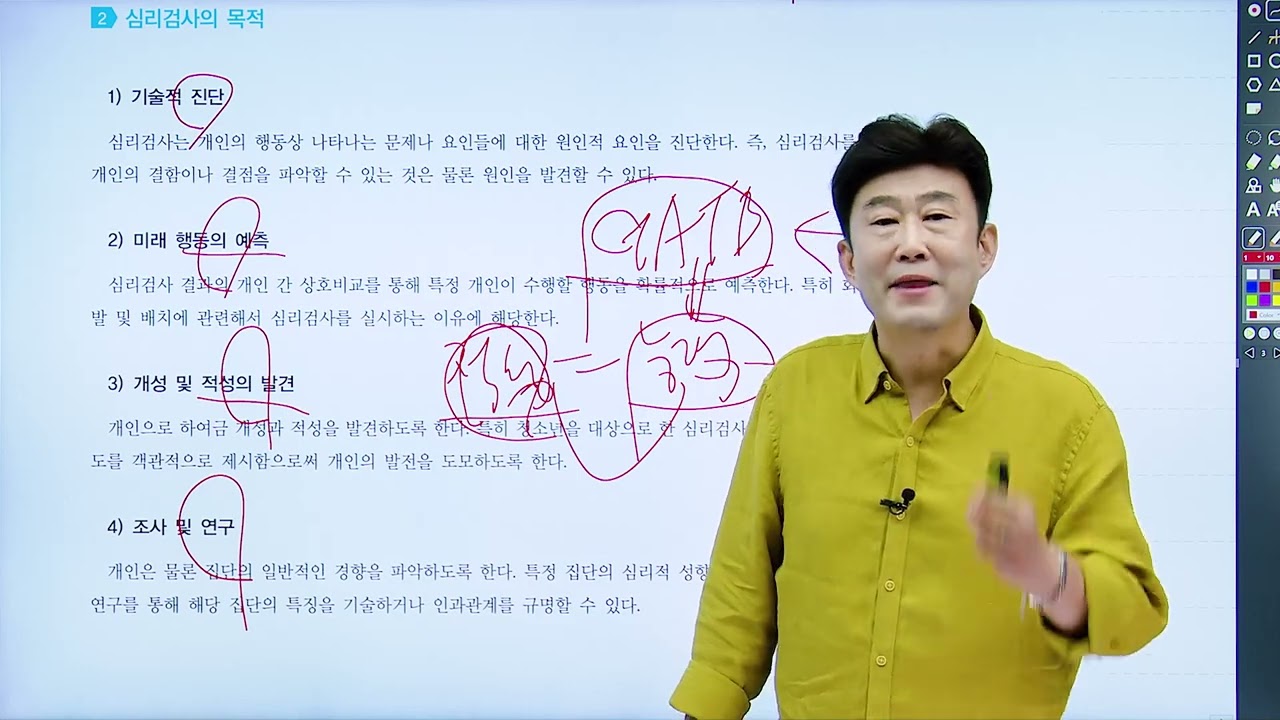 2 심리검사의 목적
1) 기술적 진단
심리검사는 개인의 행동상 나타나는 문제나 요인들에 대한 원인적 요인을 진단한다. 즉, 심리검사를
개인의 결함이나 결점을 파악할 수 있는 것은 물론 원인을 발견할 수 있다.
2) 미래 행동의 예측
심리검사 결과의 개인 간 상호비교를 통해 특정 개인이 수행할 행동을 확률적으로 예측한다. 특히
발 및 배치에 관련해서 심리검사를 실시하는 이유에 해당한다.
GATB
3) 개성 및 적성의 발견
개인으로 하여금 개성과 적성을 발견하도록 한다. 특히 청소년을 대상으로 한 심리검사
도를 객관적으로 제시함으로써 개인의 발전을 도모하도록 한다.
4) 조사 및 연구
개인은 물론 집단의 일반적인 경향을 파악하도록 한다. 특정 집단의 심리적 성향
연구를 통해 해당 집단의 특징을 기술하거나 인과관계를 규명할 수 있다.
1 10
Color
3